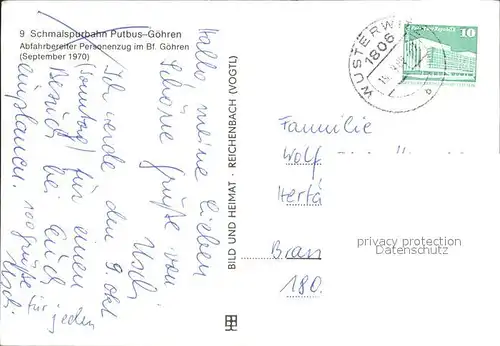 9 Schmalspurbahn Putbus-Göhren
Abfahrbereiter Personenzug im Bf. Göhren
(September 1970)
Hallo meine lieben
Schöne Grüße von
Uschi
Ich werde den 9. Okt
(Sonntag) für einen
Besuch bei Euch
einplanen. 100 Grüße für jeden
Uschi
BILD UND HEIMAT · REICHENBACH (VOGTL)
WUSTERW
1806
10
Familie
Wolf
Herta
Bran
180
privacy protection
www.ansichtskartenversand.com